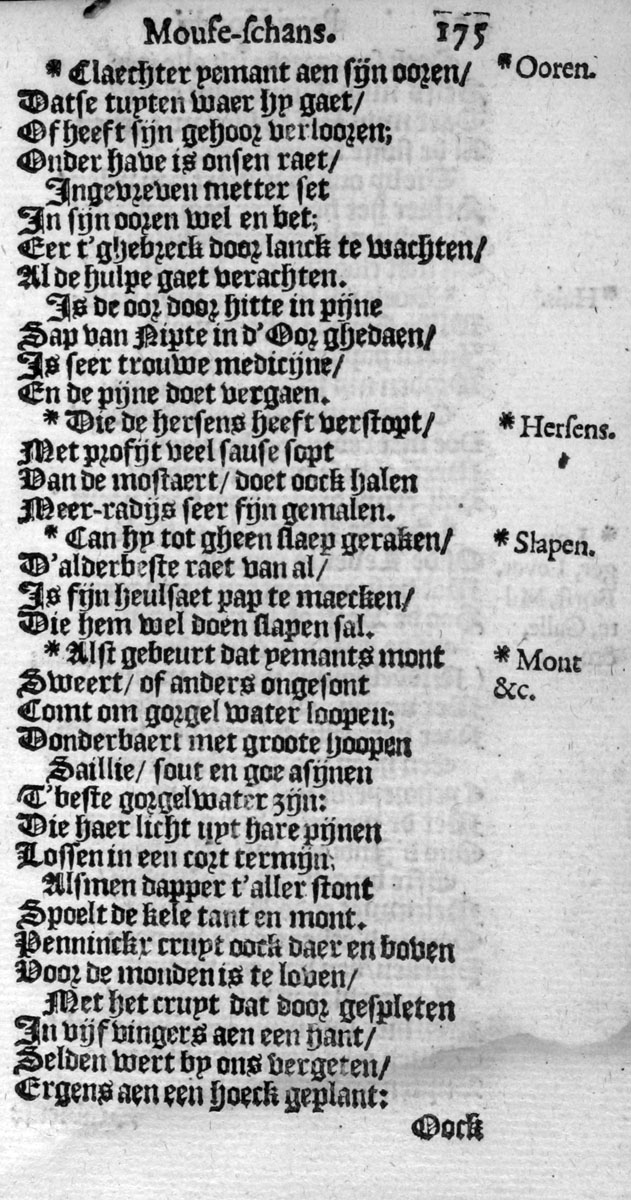 Mouse-schans. 175
* Claechter yemant aen sijn ooren/ * Ooren.
Datse tuyten waer hy gaet/
Of heeft sijn gehoor verlooren;
Onder have is onsen raet/
Ingevreven metter set
In sijn ooren wel en bet;
Eer t'ghebreck door lanck te wachten/
Al de hulpe gaet verachten.
Is de oor door hitte in pijne
Sap van Nipte in d'Oor ghedaen/
Is seer trouwe medicijne/
En de pijne doet vergaen.
* Die de hersens heeft verstopt/ * Hersens.
Met profijt veel sause sopt
Van de mostaert/ doet oock halen
Meer-radijs seer fijn gemalen.
* Can hy tot gheen slaep geraken/ * Slapen.
D'alderbeste raet van al/
Is fijn heulsaet pap te maecken/
Die hem wel doen slapen sal.
* Alst gebeurt dat yemants mont * Mont
Sweert/ of anders ongesont &c.
Comt om gorgel water loopen;
Donderbaert met groote hoopen
Saillie/ sout en goe asijnen
T'beste gorgelwater zijn:
Die haer licht uyt hare pijnen
Lossen in een cort termijn;
Alsmen dapper t'aller stont
Spoelt de kele tant en mont.
Penninckx cruyt oock daer en boven
Voor de monden is te loven/
Met het cruyt dat door gespleten
In vijf vingers aen een hant/
Selden wert by ons vergeten/
Ergens aen een hoeck geplant:
Oock